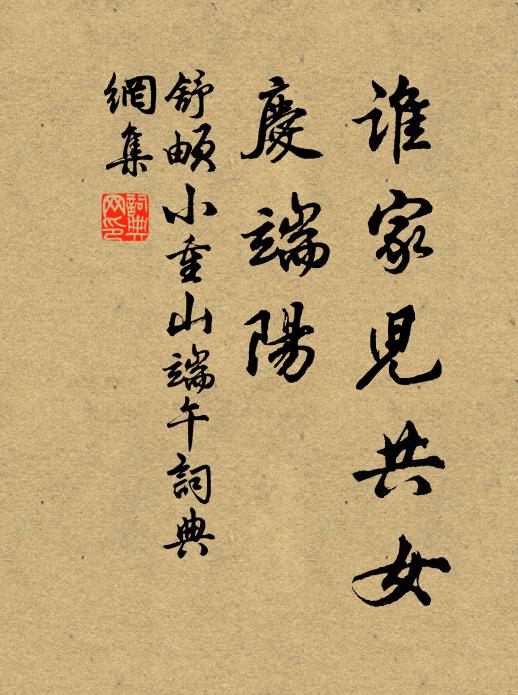 誰家兒共女
慶端陽
舒頔小重山端午詞典
網集
詞典
网印